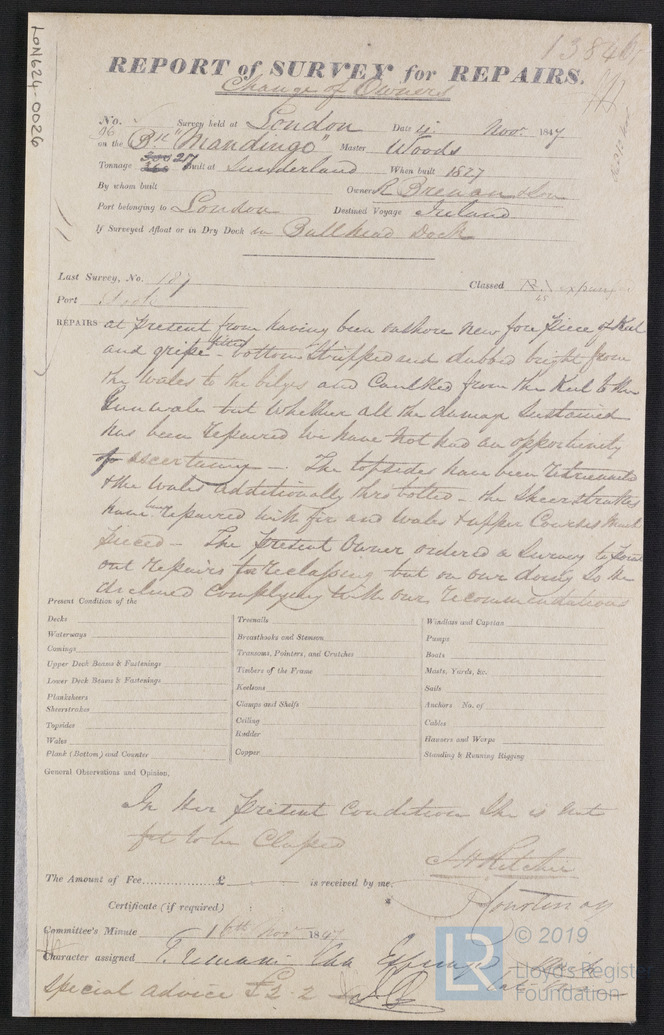 13846
LON624-0026
REPORT of SURVEY for REPAIRS.
Change of Owners
No. Survey held at London Date 4 Novr. 1847
on the Bk "Mandingo" Master Woods
Tonnage 217 Built at Sunderland When built 1827
By whom built Owner R Brennan & Son
Port belonging to London Destined Voyage Ireland
If Surveyed Afloat or in Dry Dock in Bull head Dock
Last Survey, No. 187 Classed Æ1 expunged
Port
REPAIRS at present from having been onshore new fore piece of Keel
and gripe bottom Stripped and dubbed bright from
the wales to the bilges and Caulked from the Keel to the
Gunwale but whether all the damage Sustained
has been repaired we have not had an opportunity
of ascertaining — The topsides have been
& the Wales additionally thro bolted — the Sheerstrakes
have been repaired with fir and wales & upper Courses
pieced — The present Owner ordered a Survey to point
out repairs for reclassing but on our doing so he
declined complying with our recommendations
Present Condition of the
Decks
Waterways
Comings
Upper Deck Beams & Fastenings
Lower Deck Beams & Fastenings
Planksheers
Sheerstrakes
Topsides
Wales
Plank (Bottom) and Counter
Treenails
Breasthooks and Stemson
Transoms, Pointers, and Crutches
Timbers of the Frame
Keelsons
Clamps and Shelfs
Ceiling
Rudder
Copper
Windlass and Capstan
Pumps
Boats
Masts, Yards, &c.
Sails
Anchors No. of
Cables
Hawsers and Warps
Standing & Running Rigging
General Observations and Opinion,
In Her present condition She is not
fit to be Classed
J H Ritchie
The Amount of Fee £ is received by me,
Courtenay
Certificate (if required)
Committee's Minute 16th Novr. 1847
Character assigned
special advice £2-2
LR
© 2019
Lloyd's Register
Foundation